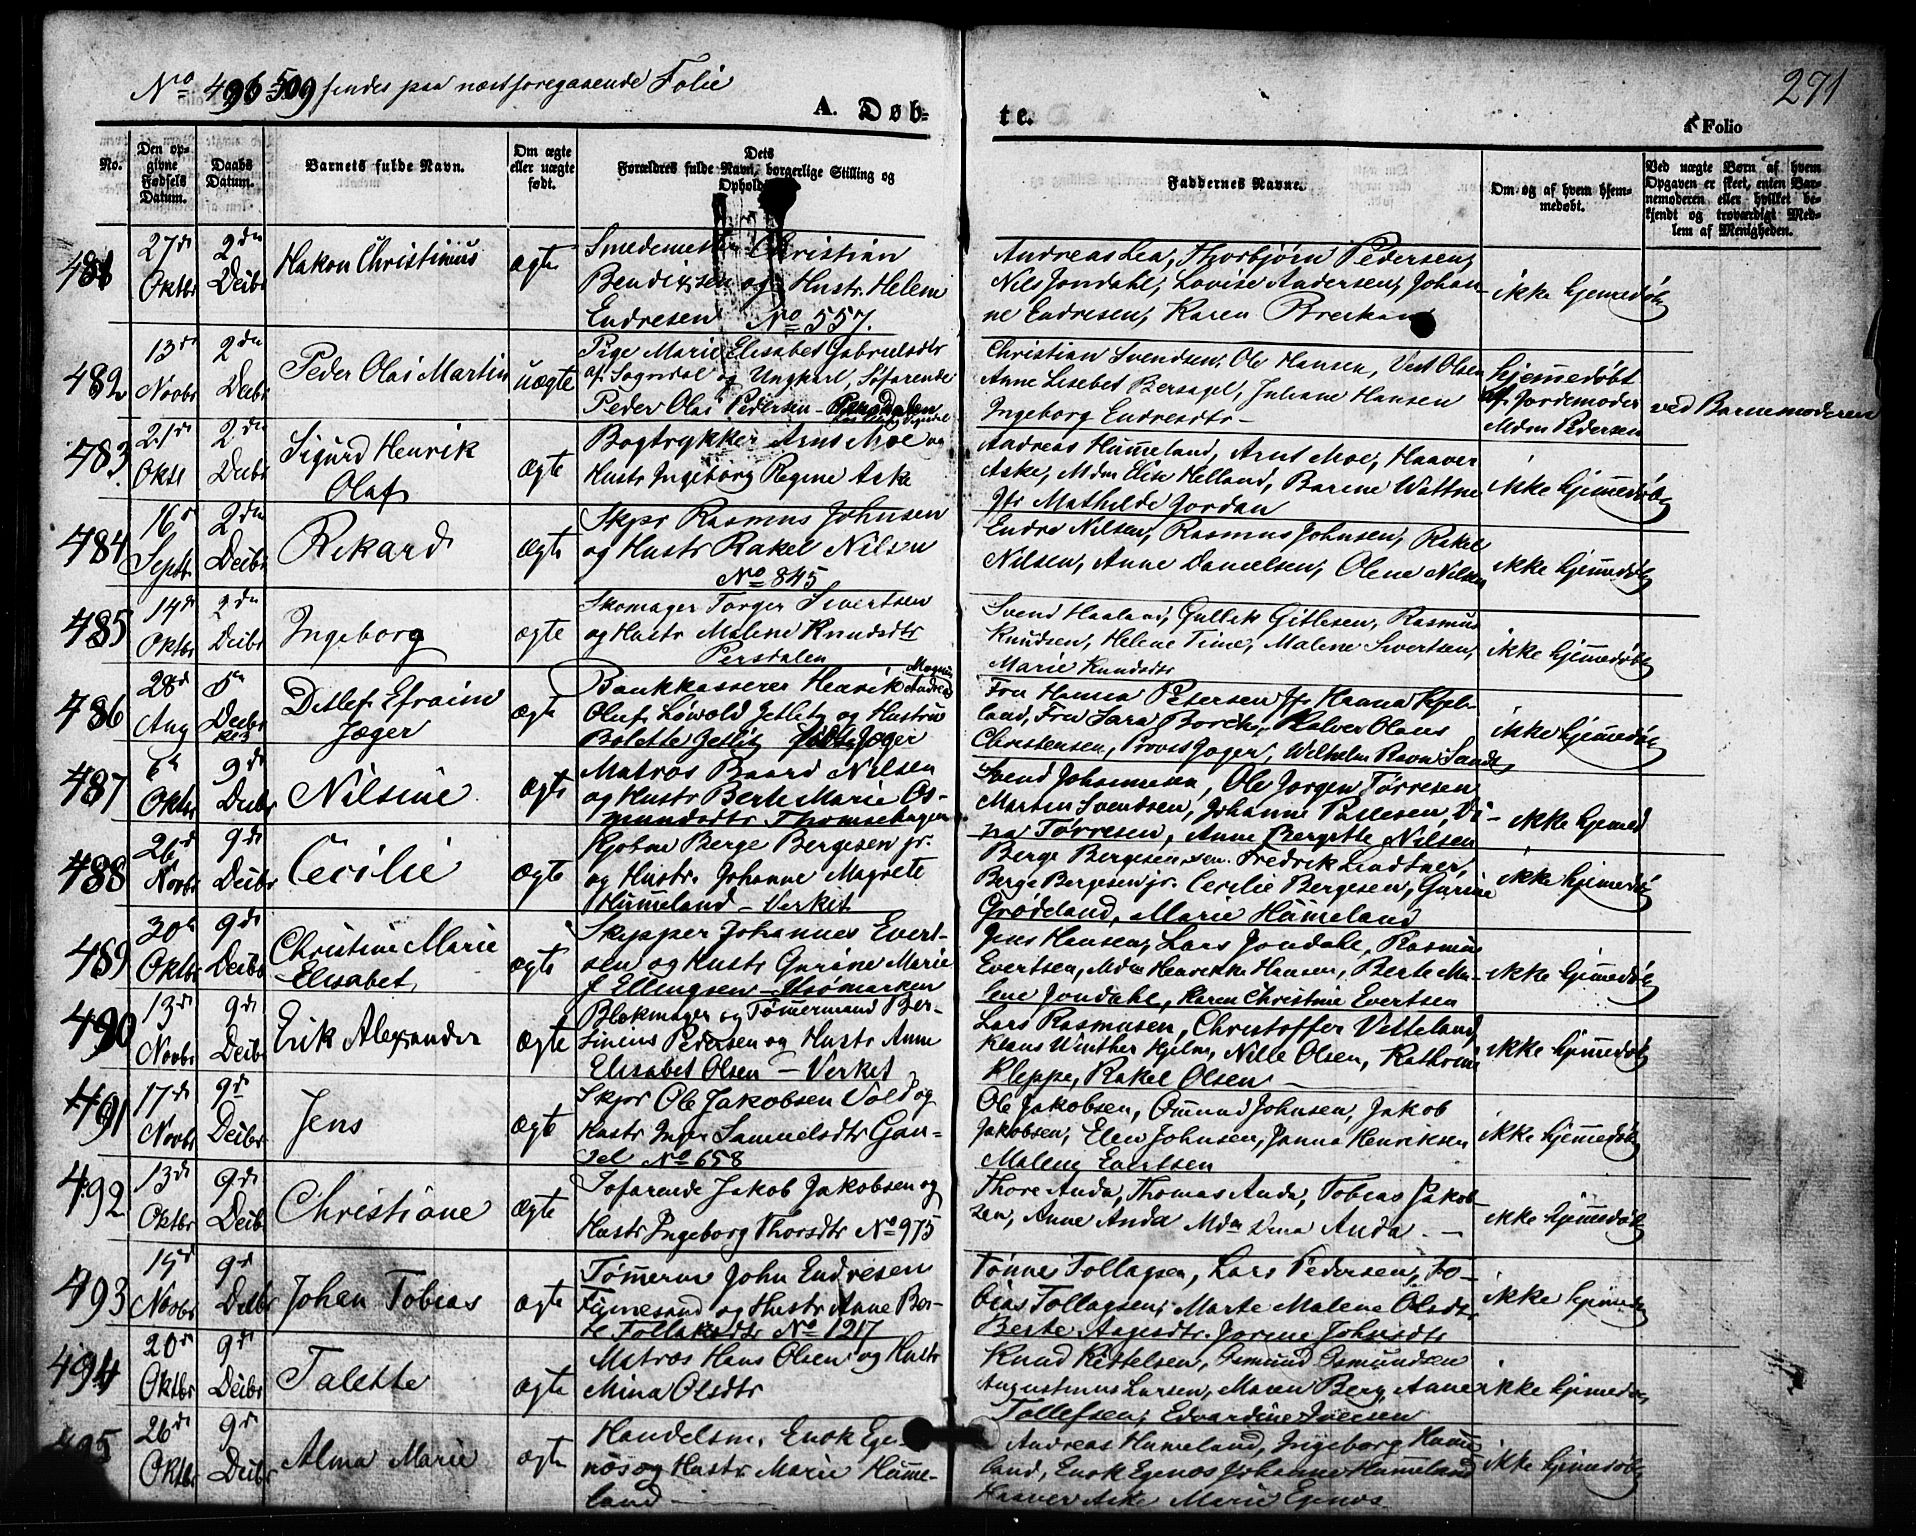 No 496-509 findes paa næstforegaaende Folie
271
A. Døb-
te.
a Folio
No.
Den op-
givne
Fødsels
Datum.
Daabs
Datum.
Barnets fulde Navn.
Om ægte
eller uægte
født.
Dets
Forældres fulde Navn, borgerlige Stilling og
Faddernes Navne.
Om og af hvem hjem-
medøbt.
Ved uægte Børn af hvem
Opgaven er skeet, enten Bar-
nemoderen eller hvilket be-
kjendt og troværdigt Med-
lem af Menigheden.
481
27de
Oktbr
2den
Decbr
Hakon Christinius
ægte
Smedemester Christian
Bendixsen og Hustr. Helene
Endresen No 557.
Andreas Lea, Thorbjørn Pedersen,
Nils Jondahl, Lovise Andersen, Johan-
ne Endresen, Karen
ikke hjemedøbt
482
13de
Novbr
2den
Decbr
Peder Olai Martin
uægte
Pige Marie Elisabet Gabrielsdtr
af Sogndal og Ungkarl, Søfarende
Peder Olai Pedersen -
Christian Svendsen, Ole Hansen, Olsen
Anne Lisebet Bersagel, Juliane Hansen
Ingeborg Endresdtr -
hjemedøbt
af Jordemoder
Mdm Pedersen
ved Barnemoderen
483
21de
Oktr
2den
Decbr
Sigurd Henrik
Olaf
ægte
Bogtrykker Arnt Moe og
Hustr Ingeborg Regine Aske
Andreas Hummeland, Arnt Moe, Haaver
Aske, Mdm Elise Helland, Barine Wattne
Jfr Mathilde Jordan
ikke hjemedøbt
484
16de
Septbr
2den
Decbr
Rikard
ægte
Skpr Rasmus Johnsen
og Hustr Rakel Nilsen
No 845
Endre Nilsen, Rasmus Johnsen, Rakel
Nilsen, Anne Danielsen, Olene Nilsen
ikke hjemedøbt
485
14de
Oktbr
2den
Decbr
Ingeborg
ægte
Skomager Torger Sivertsen
og Hustr Malene Knudsdtr
Persdalen
Svend Haaland, Gullek Gitlesen, Rasmus
Knudsen, Helene Time, Malene Sivertsen,
Marie Knudsdtr
ikke hjemedøbt
486
28de
Aug
5te
Decbr
Ditlef Efraim
Jæger
ægte
Bankkasserer Henrik Magnus Andreas
Oluf Løwold Zetlitz og Hustru
Bolette Zetlitz født Jæger
Fru Hanna Petersen Jfr Hanna Kjel-
land, Fru Sara Halvor Olaus
Christensen, Provst Jæger, Wilhelm Ravn Sundt,
ikke hjemedøbt
487
6te
Oktbr
9de
Decbr
Nilsine
ægte
Matros Baard Nilsen
og Hustr Berte Marie Os-
mundsdtr Thomsehagen
Svend Johannesen, Ole Jørgen Tørresen
Martin Svendsen, Johanne Pallesen, Di-
na Tørresen, Anne Bergitte Nilsen
ikke hjemed
488
26de
Novbr
9de
Decbr
Cecilie
ægte
Kjøbm Berge Bergesen jr.
og Hustr. Johanne Magrete
Hummeland - Verket
Berge Bergesen sen. Fredrik Lindtner,
Berge Bergesen jr. Cecilie Bergesen, Gurine
Grødeland, Marie Hummeland
ikke hjemedøbt
489
30te
Oktbr
9de
Decbr
Christine Marie
Elisabet
ægte
Skipper Johannes Evert-
sen og Hustr Gurine Marie
J Ellingsen - Strømarken
Jens Hansen, Lars Jondahl, Rasmus
Evertsen, Mdm Henrikke Hansen, Berte Ma-
lene Jondahl, Karen Christine Evertsen
ikke hjemedøbt
490
13de
Novbr
9de
Decbr
Erik Alexander
ægte
Blokmager og Tømmermand Ber-
Pedersen og Hustr Anne
Elisabet Olsen - Verket
Lars Rasmusen, Christoffer Vetteland,
Klaus Winther Hjelm, Nille Olsen, Kathrine
Kleppe, Rakel Olsen -
ikke hjemedøbt
491
17de
Novbr
9de
Decbr
Jens
ægte
Skpr Ole Jakobsen Vold og
Hustr Inger Samuelsdtr Gan-
del No 658
Ole Jakobsen, Omund Johnsen, Jakob
Jakobsen, Elen Johnsen, Janna Henriksen
Malene Evertsen
ikke hjemedøbt
492
13de
Oktbr
9de
Decbr
Christiane
ægte
Søfarende Jakob Jakobsen og
Hustr Ingeborg Thorsdtr No 975
Thore Anda, Thomas Anda, Tobias Jakob-
sen, Anne Anda Mdm Dina Anda. -
ikke hjemedøbt
493
15de
Novbr
9de
Decbr
Johan Tobias
ægte
Tømmerm John Endresen
og Hustr Anne Ber-
te Tollaksdtr No 1217
Tønne Tollagsen, Lars Pedersen, To-
bias Tollagsen, Marte Malene Olsdtr,
Berte Aagesdtr. Jorine Johnsdtr
ikke hjemedø
494
20de
Oktbr
9de
Decbr
Talette
ægte
Matros Hans Olsen og Hustr
Mina Olsdtr
Knud Kittelsen, Osmund Osmundsen
Augustinus Larsen, Maren Berg, Anne
Tollefsen, Edvardine Iversen
ikke hjemedø
495
26de
Oktbr
9de
Decbr
Alma Marie
ægte
Handelsm. Enok Ege-
næs og Hustr Marie Humme-
land -
Andreas Hummeland, Ingeborg Humme-
land, Enok Egenæs Johanne Hummeland
Haaver Aske Marie Egenæs
ikke hjemedøbt